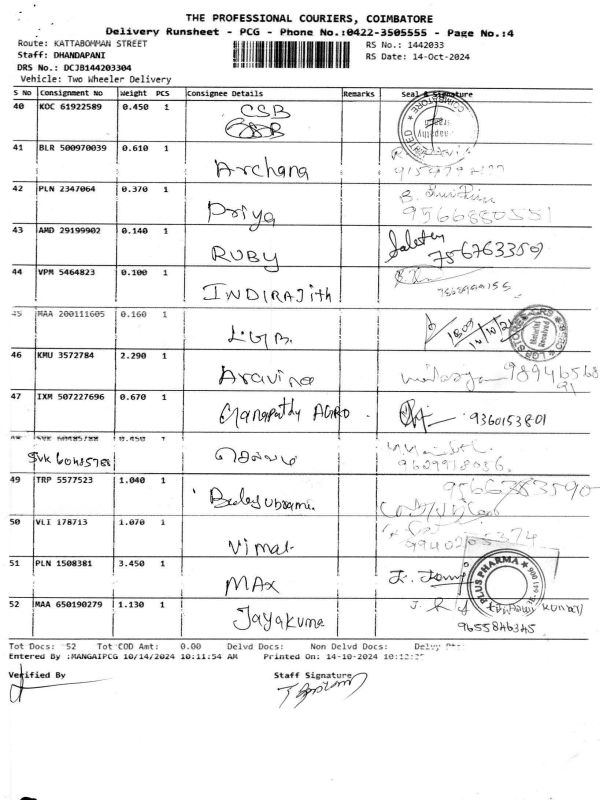 THE PROFESSIONAL COURIERS, COIMBATORE
Delivery Runsheet - PCG - Phone No.:0422-3505555 - Page No.:4
Route: KATTABOMMAN STREET RS No.: 1442033
Staff: DHANDAPANI RS Date: 14-Oct-2024
DRS No.: DCJB144203304
Vehicle: Two Wheeler Delivery
S No Consignment No Weight PCS Consignee Details Remarks Seal & Signature
40 KOC 61922589 0.450 1 CSB
CSB
41 BLR 500970039 0.610 1
Archana
42 PLN 2347064 0.370 1
Priya 9566880551
43 AMD 29199902 0.140 1
RUBY 7567633509
44 VPM 5464823 0.100 1
INDIRAJith
45 MAA 200111605 0.160 1
L.G.B.
46 KMU 3572784 2.290 1
Aravina 98946568
47 IXM 507227696 0.670 1
Ganapathy AGRO 9360153801
48 SVK 60485788 0.450 1
SVK 60485788
செல்வம்
49 TRP 5577523 1.040 1 9566383590
50 VLI 178713 1.070 1
Vimal
51 PLN 1508381 3.450 1
MAX PLUS PHARMA
52 MAA 650190279 1.130 1
Jayakuma 9655846345
Tot Docs: 52 Tot COD Amt: 0.00 Delvd Docs: Non Delvd Docs:
Entered By :MANGAIPCG 10/14/2024 10:11:54 AM Printed On: 14-10-2024
Verified By Staff Signature